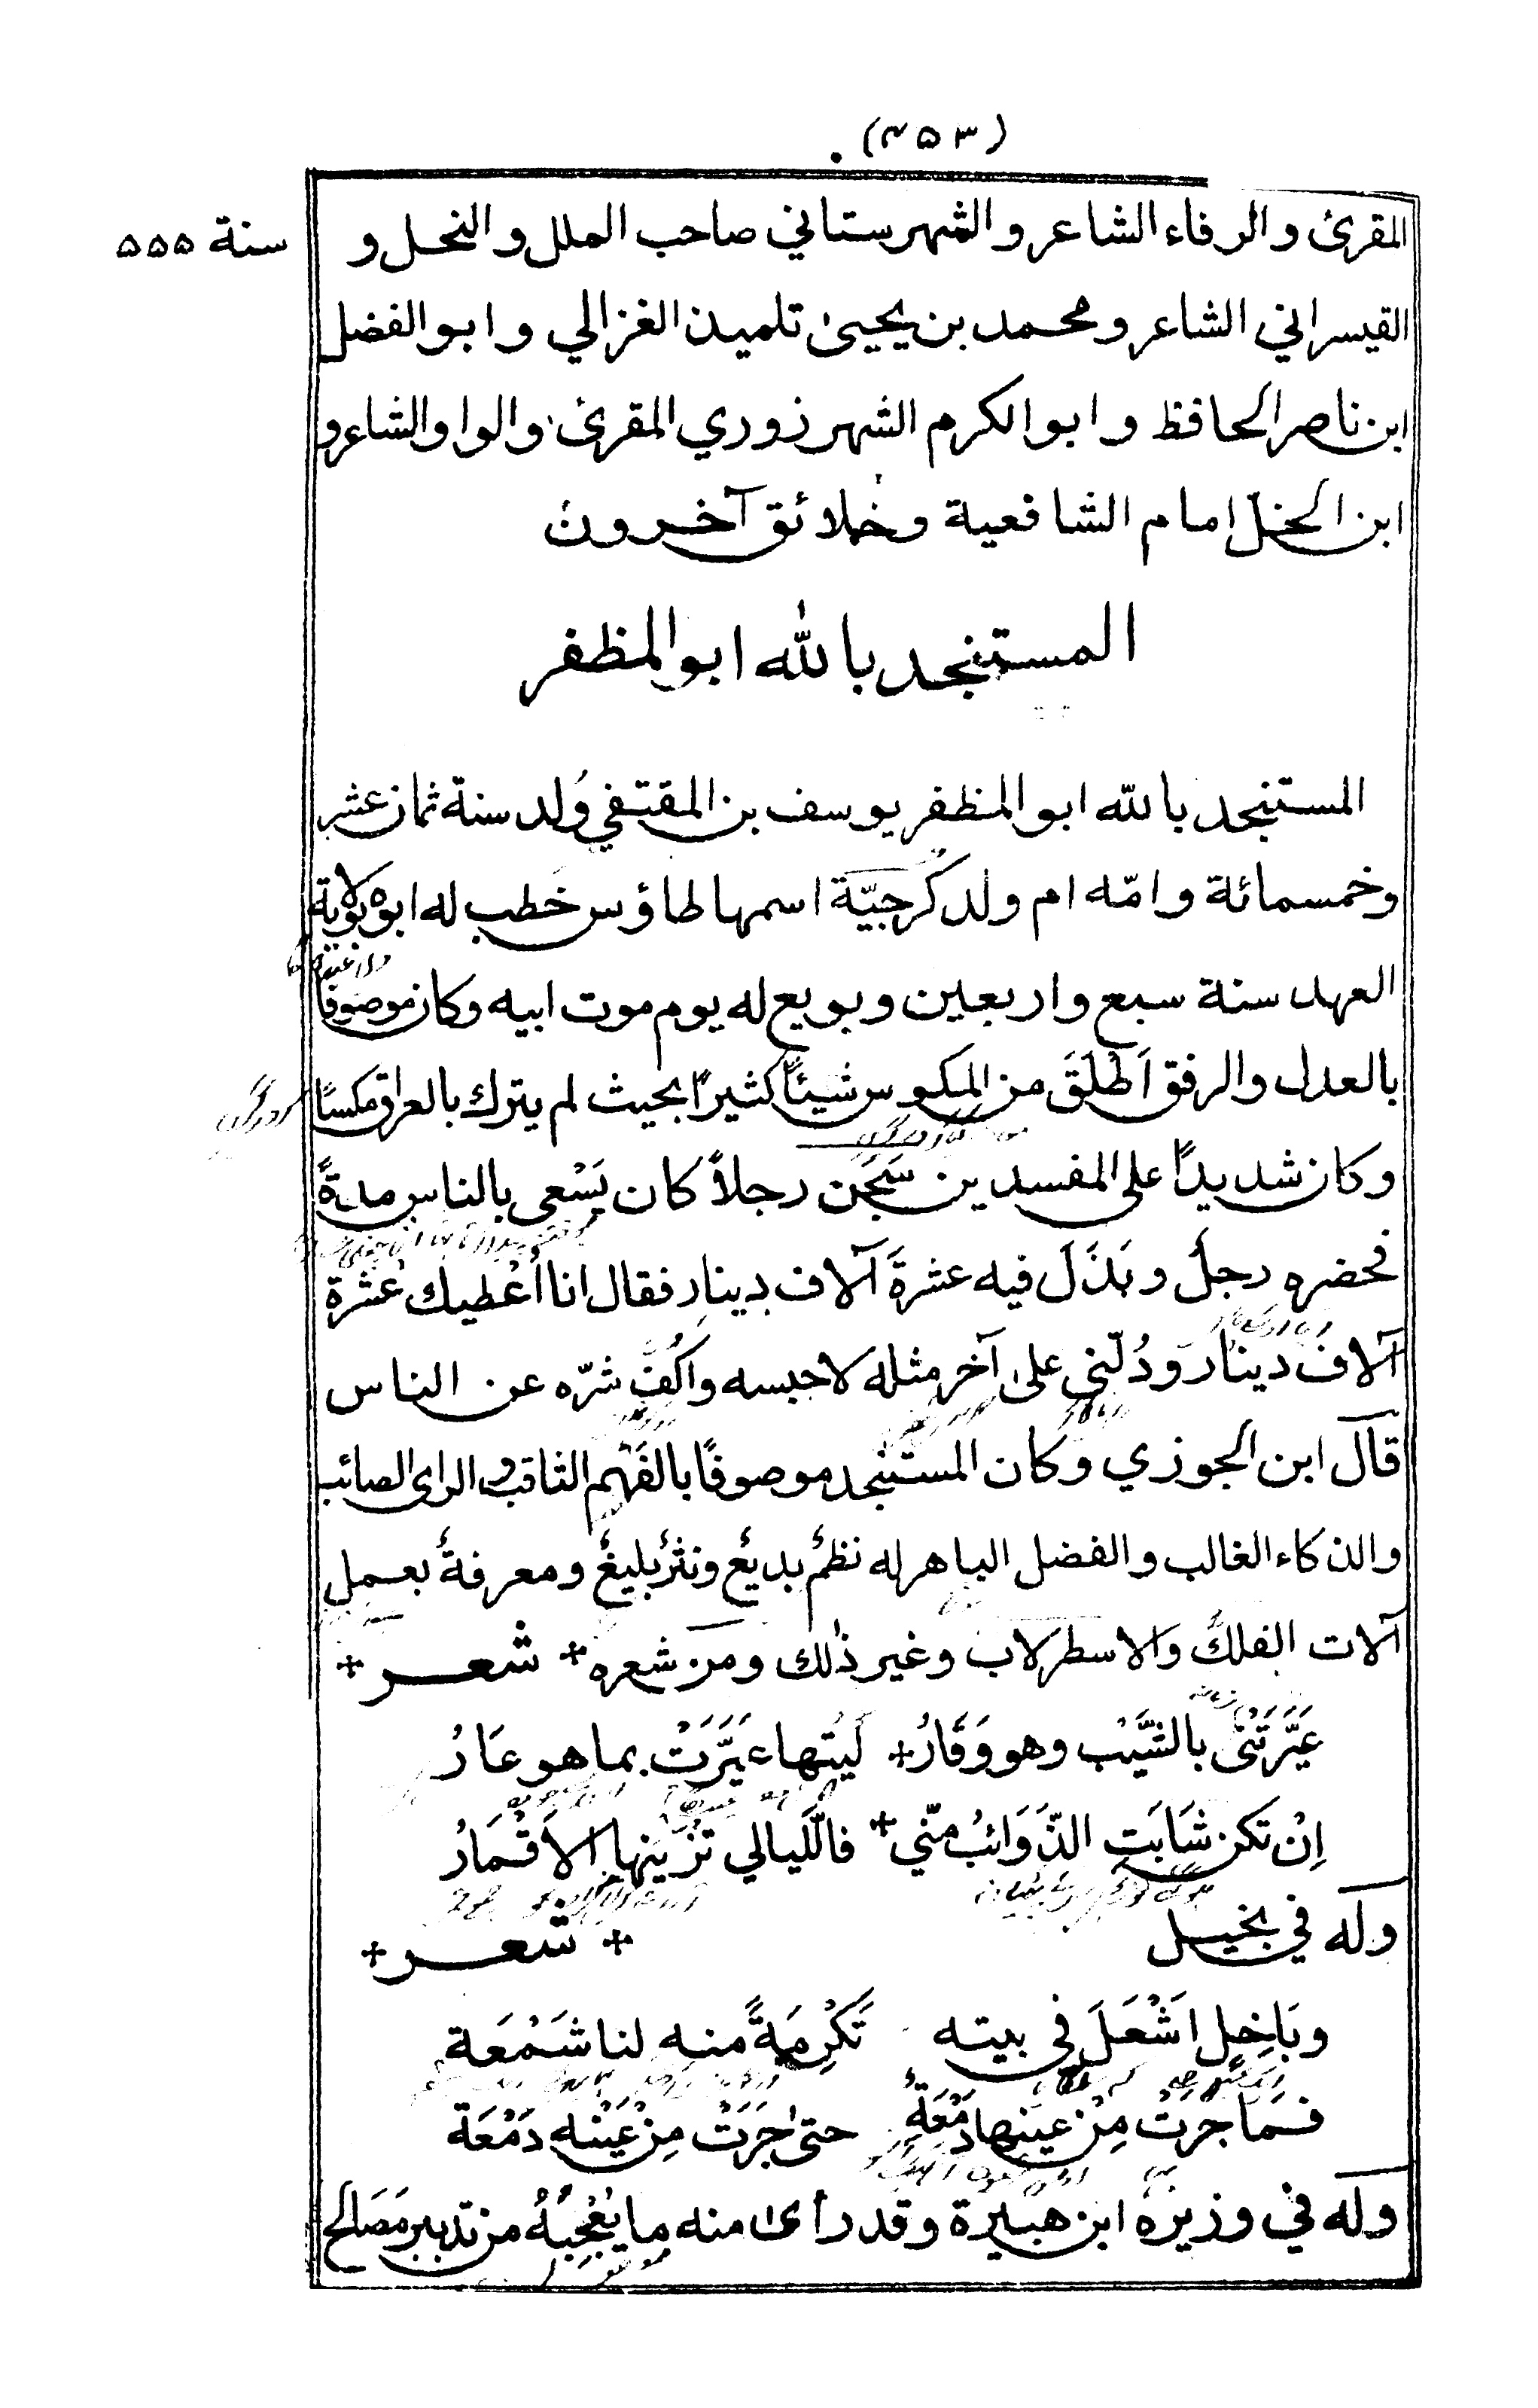 (۴۵۳)
سنة ۵۵۵
المقرئ والرفاء الشاعر والشهرستاني صاحب الملل والنحل و
القيسراني الشاعر ومحمد بن يحيىٰ تلميذ الغزالي وابوالفضل
ابن ناصر الحافظ وابوالكرم الشهرزوري المقرئ والوا والشاعر و
ابن الخل امام الشافعية وخلائق آخرون
المستنجد بالله ابوالمظفر
المستنجد بالله ابوالمظفر يوسف بن المقتفي وُلد سنة ثمان عشر
وخمسمائة وامّه ام ولد كرجيّة اسمها طاؤس خطب له ابوه بولاية
العهد سنة سبع واربعين وبويع له يوم موت ابيه وكان موصوفًا
بالعدل والرفق اَطْلَقَ من المكوس شيئًا كثيرًا بحيث لم يترك بالعراق مكسًا
وكان شديدًا على المفسدين سَجَن رجلاً كان يَسْعى بالناس مدةً
فحضره رجلٌ وبَذَلَ فيه عشرةَ آلاف دينار فقال انا اُعْطيك عشرة
آلاف دينار ودُلّني علىٰ آخر مثله لاحبسه واكُفّ شرّه عن الناس
قال ابن الجوزي وكان المستنجد موصوفًا بالفَهْم الثاقب والراى الصائب
والذكاء الغالب والفضل الباهر له نظمٌ بديعٌ ونثرٌ بليغٌ ومعرفةٌ بعمل
آلات الفلك والاسطرلاب وغير ذٰلك ومن شعره + شعر +
عَيَّرَتْنى بالشَّيْب وهو وَقَارُ + لَيتها عَيَّرَتْ بما هو عَارُ
اِنْ تكن شَابَتِ الذَّوَائبُ منّي + فالَّليالي تُزينها الاَقْمَارُ
وله في بخيل + شعر +
وبَاخِلٍ اشْعَلَ في بيته تَكْرِمَةً منه لنا شَمْعَة
فمَا جَرَتْ مِنْ عينها دَمْعَةٌ حتىٰ جَرَتْ مِنْ عَيْنه دَمْعَة
وله في وزيره ابن هبيرة وقد رأى منه ما يُعْجِبُهُ من تدبير مَصَالح